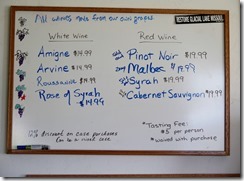 All wines made from our own grapes
RESTORE GLACIAL LAKE MISSOULA
White Wine
Amigne $14.99
Arvine $14.99
Roussanne $14.99
Rose of Syrah
$14.99
Red Wine
Pinot Noir $19.99
Malbec $19.99
Syrah $19.99
Cabernet Sauvignon $19.99
10% discount on case purchases
*Tasting Fee:
$5 per person
*waved with purchase